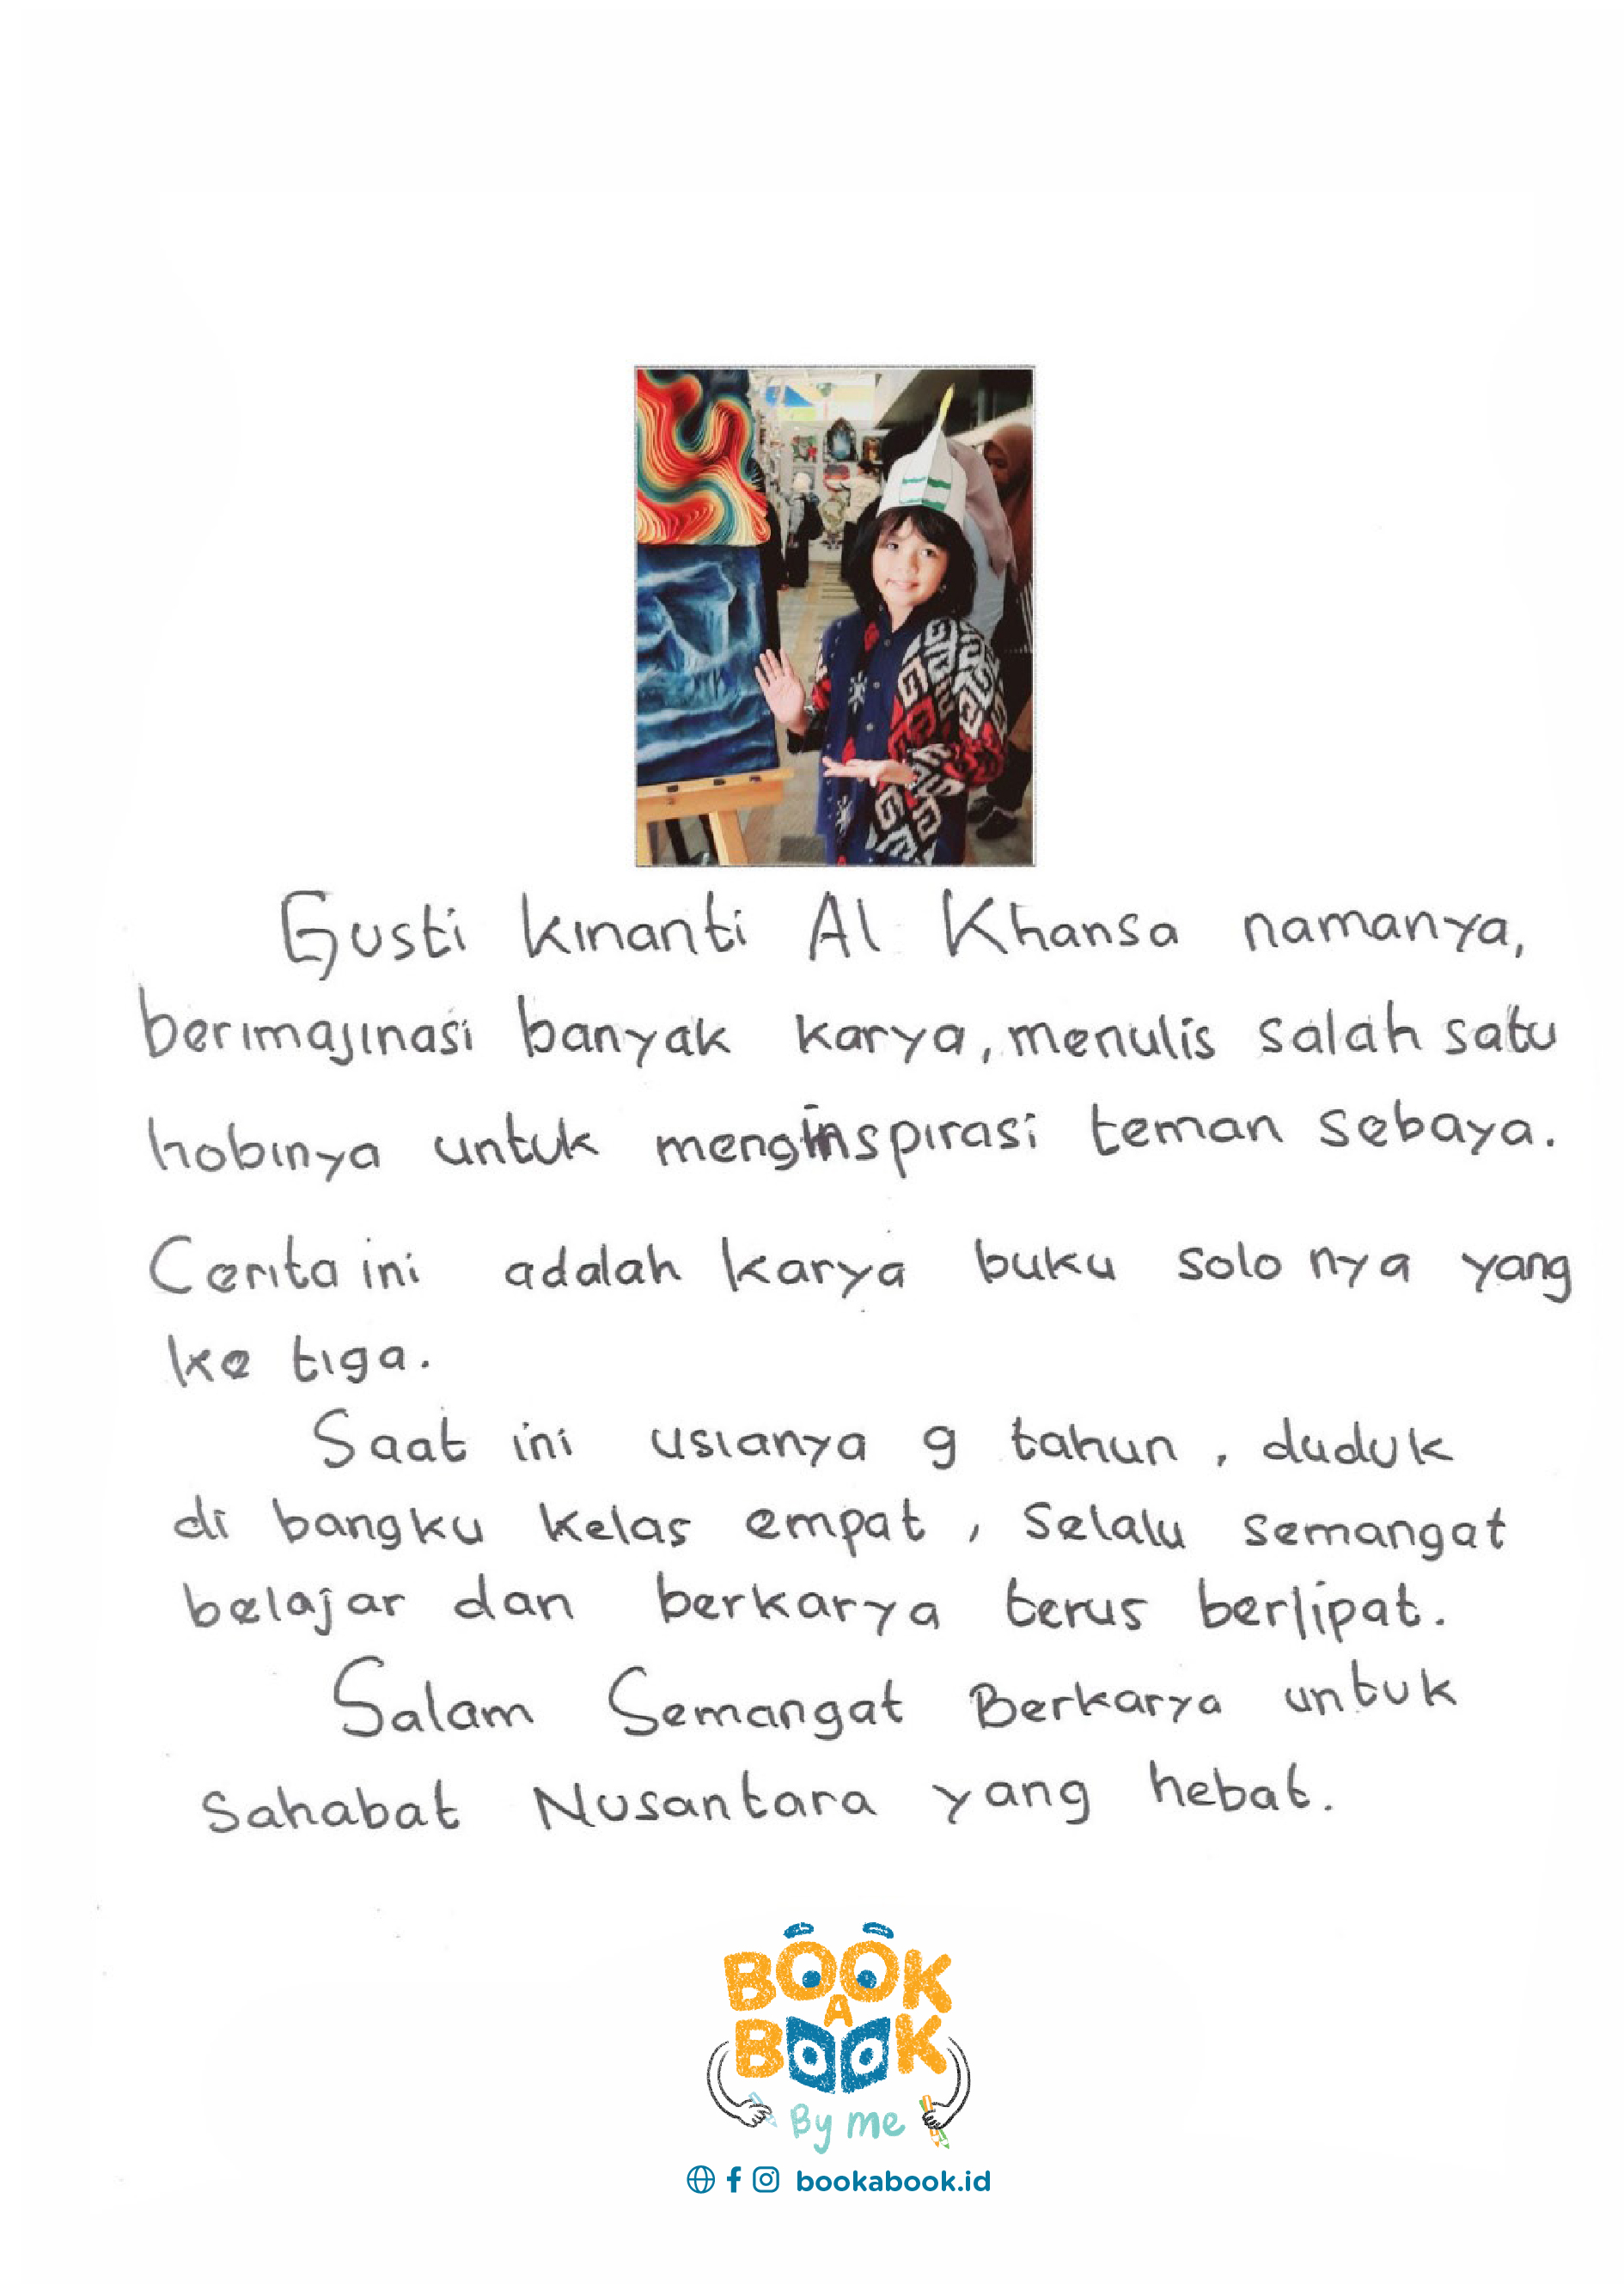 Gusti kinanti Al Khansa namanya,
berimajinasi banyak karya, menulis salah satu
hobinya untuk menginspirasi teman sebaya.
Cerita ini adalah karya buku solo nya yang
ke tiga.
Saat ini usianya 9 tahun, duduk
di bangku kelas empat, selalu semangat
belajar dan berkarya terus berlipat.
Salam Semangat Berkarya untuk
Sahabat Nusantara yang hebat.
BOOK
A
BOOK
By me
bookabook.id